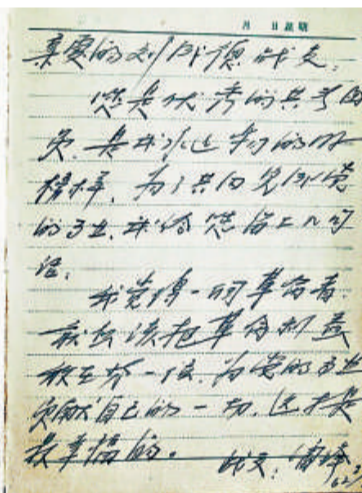 月 日星期
亲爱的刘成德战友:
您是优秀的共产党
员,是我永远学习的好
榜样,为了共同完成党
的事业,我给您留上几句
话:
我觉得一个革命者,
就应该把革命利益
放在第一位,为党的事业
贡献自己的一切,这才是
最幸福的。
战友:雷锋